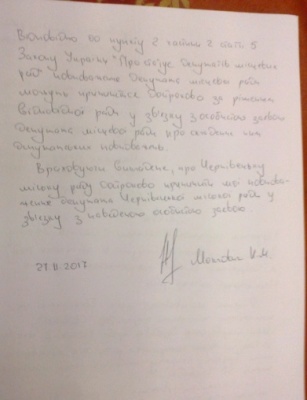 Відповідно до пункту 2 частини 2 статті 5
Закону України "Про статус депутатів місцевих
рад" повноваження депутата місцевої ради
можуть припинятися достроково за рішенням
відповідної ради у зв'язку з особистою заявою
депутата місцевої ради про складення ним
депутатських повноважень.
Враховуючи викладене, прошу Чернівецьку
міську раду достроково припинити мої повнова-
ження депутата Чернівецької міської ради у
зв'язку з поданою особистою заявою.
21.11.2017